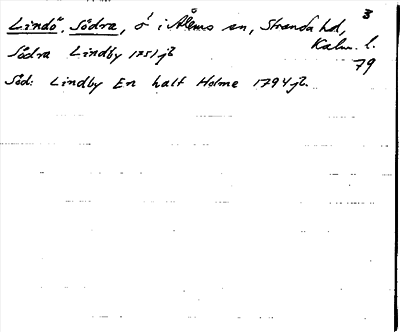 3
Lindö, Södra, ö i Ålems sn, Stranda hd,
Kalm. l.
Södra Lindby 1751 jb
79
Söd: Lindby En half Holme 1794 jb.